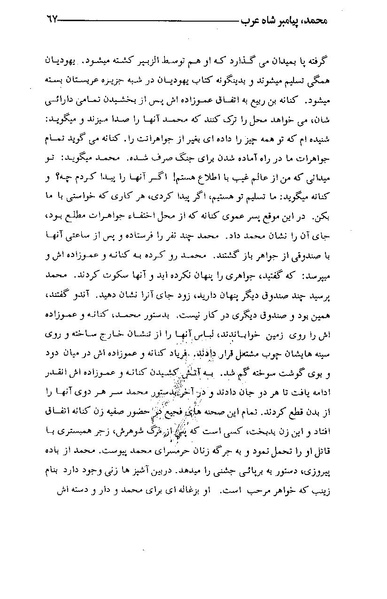 محمد، پیامبر شاه عرب ــــــــ ۶۷
گرفته پا بمیدان می گذارد که او هم توسط الزبیر کشته میشود. یهودیان
همگی تسلیم میشوند و بدینگونه کتاب یهودیان در شبه جزیره عربستان بسته
میشود. کنانه بن ربیع به اتفاق عموزاده اش پس از بخشیدن تمامی دارائی
شان، می خواهد محل را ترک کنند که محمد آنها را صدا میزند و میگوید:
شنیده ام که تو همه چیز را داده ای بغیر از جواهرانت را. کنانه می گوید تمام
جواهرات ما در راه آماده شدن برای جنگ صرف شده. محمد میگوید: تو
میدانی که من از عالم غیب با اطلاع هستم! اگر آنها را پیدا کردم چه؟ و
کنانه میگوید: ما تسلیم تو هستیم، اگر پیدا کردی، هر کاری که خواستی با ما
بکن. در این موقع پسر عموی کنانه که از محل اختفاء جواهرات مطلع بود،
جای آن را نشان محمد داد. محمد چند نفر را فرستاده و پس از ساعتی آنها
با صندوقی از جواهر باز گشتند. محمد رو کرده به کنانه و عموزاده اش و
میپرسد: که گفتید، جواهری را پنهان نکرده اید و آنها سکوت کردند. محمد
پرسید چند صندوق دیگر پنهان دارید، زود جای آنرا نشان دهید. آندو گفتند،
همین بود و صندوق دیگری در کار نیست. بدستور محمد، کنانه و عموزاده
اش را روی زمین خواباندند، لباس آنها را از تنشان خارج ساخته و روی
سینه هایشان چوب مشتعل قرار دادند. فریاد کنانه و عموزاده اش در میان دود
و بوی گوشت سوخته گم شد. به آتش کشیدن کنانه و عموزاده اش آنقدر
ادامه یافت تا هر دو جان دادند و در آخر بدستور محمد سر هر دوی آنها را
از بدن قطع کردند. تمام این صحنه های فجیع در حضور صفیه زن کنانه اتفاق
افتاد و این زن بدبخت، کسی است که پس از مرگ شوهرش، زجر همبستری با
قاتل او را تحمل نمود و به جرگه زنان حرمسرای محمد پیوست. محمد از باده
پیروزی، دستور به برپائی جشنی را میدهد. دربین آشپز ها زنی وجود دارد بنام
زینب که خواهر مرحب است. او بزغاله ای برای محمد و دار و دسته اش